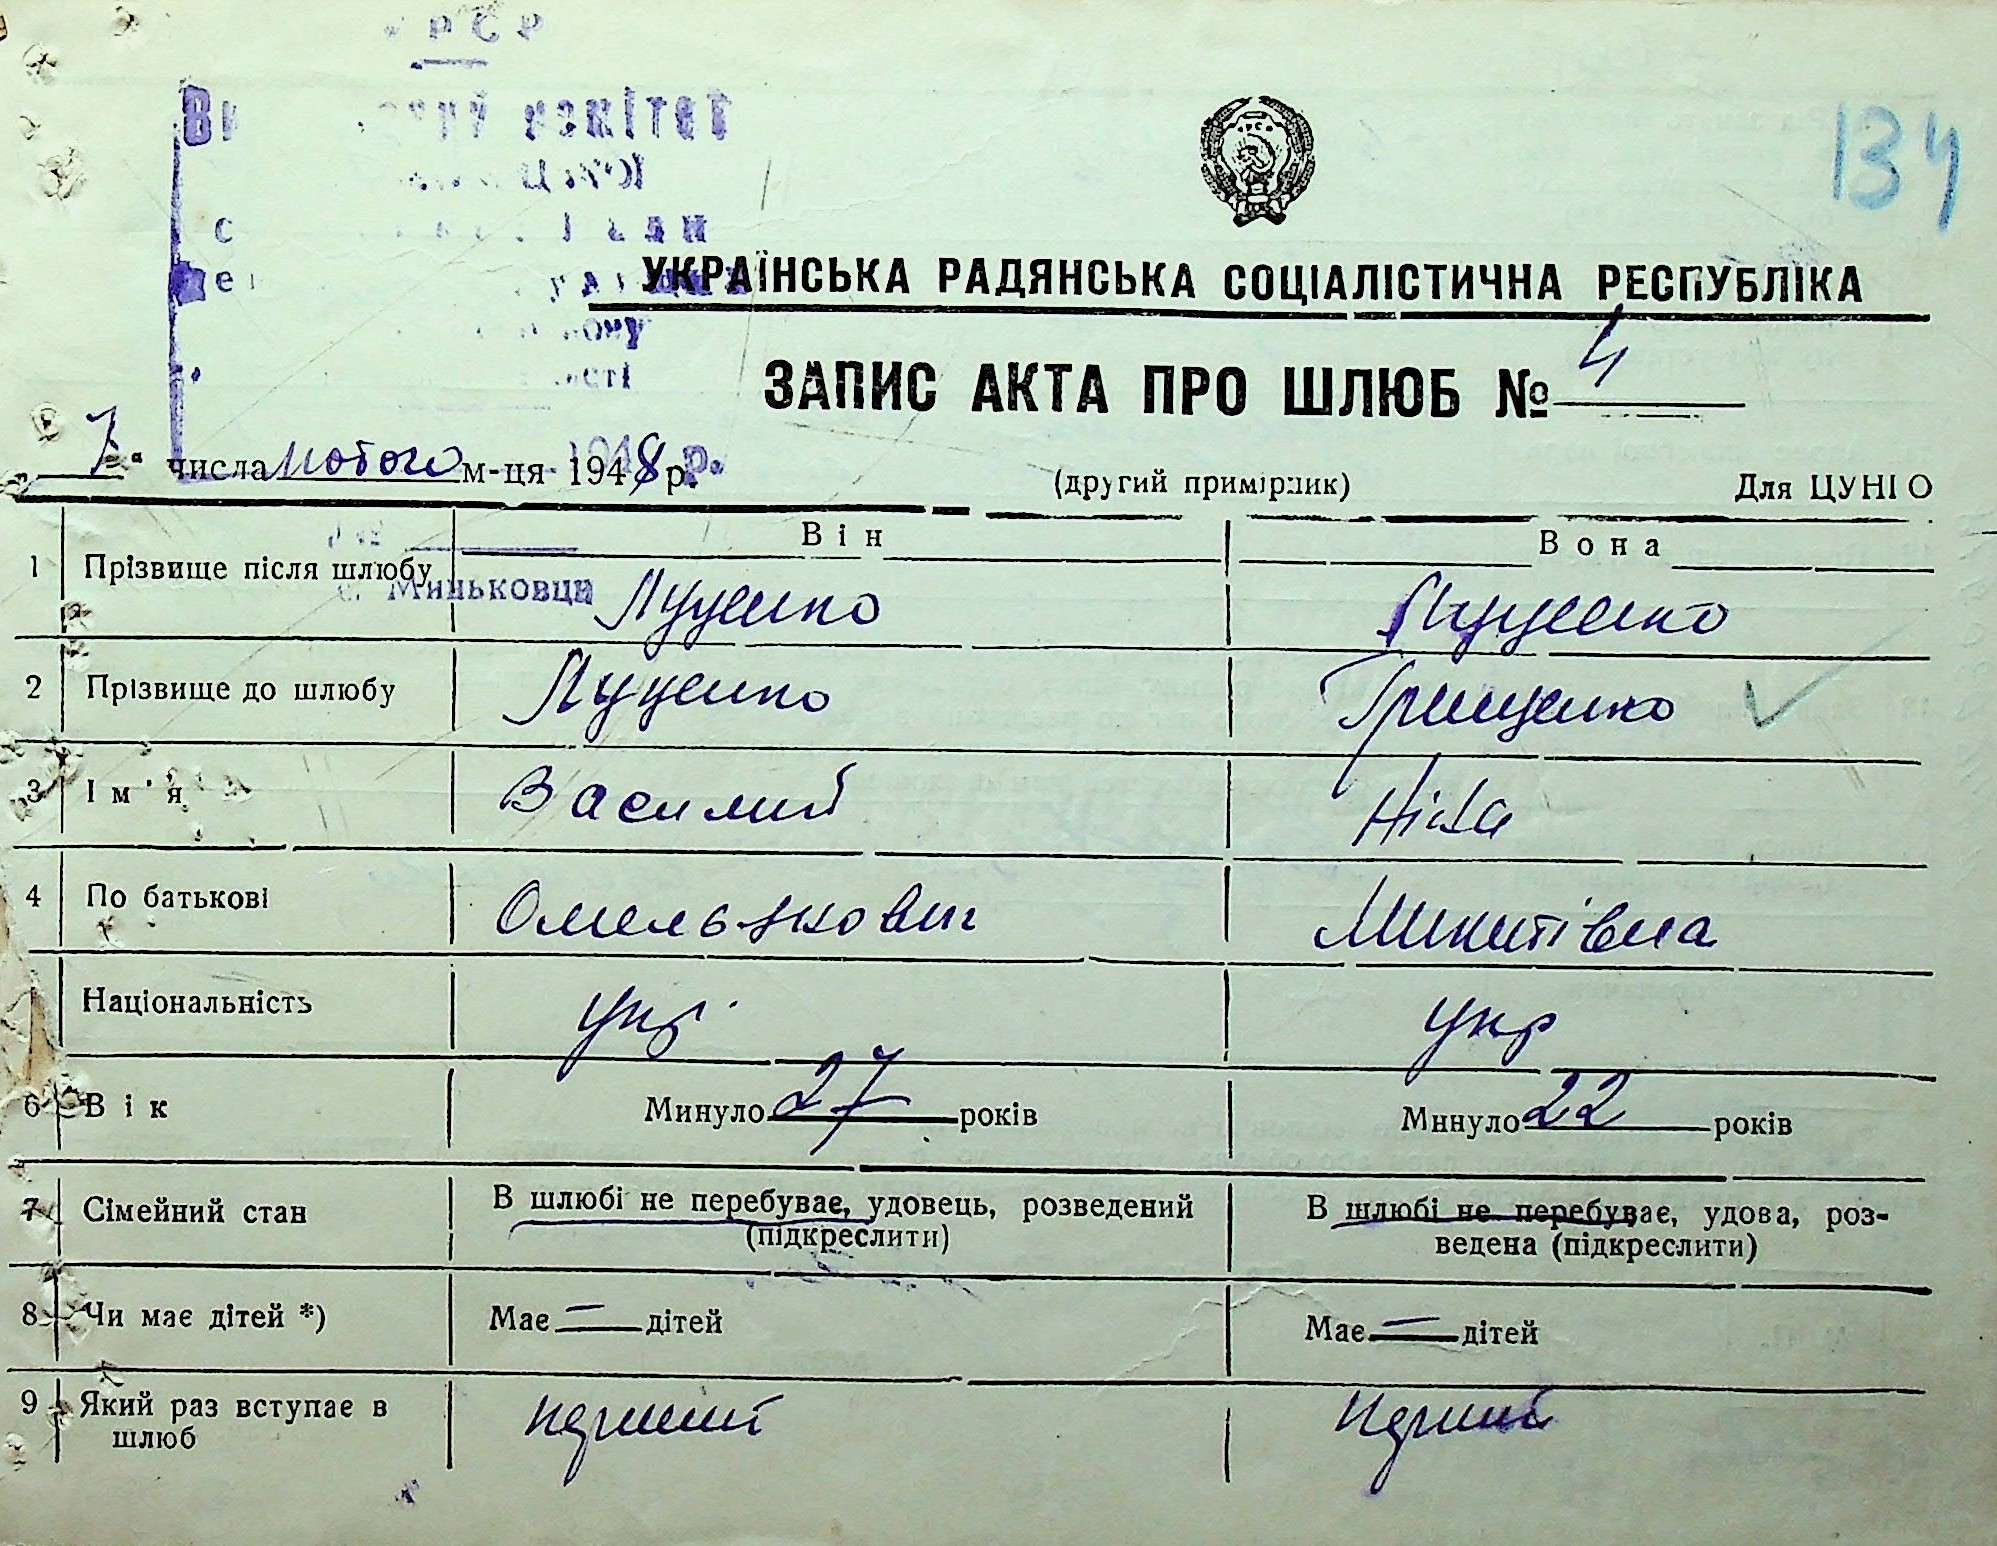 комітет
134
УКРАЇНСЬКА РАДЯНСЬКА СОЦІАЛІСТИЧНА РЕСПУБЛІКА
ЗАПИС АКТА ПРО ШЛЮБ № 4
7 " числа лютого м-ця 1948 р.
(другий примірник)
Для ЦУНГО
Він
Вона
1 Прізвище після шлюбу Луценко Луценко
с. Миньковци
2 Прізвище до шлюбу Луценко Грищенко
3 Ім'я Василий Ніна
4 По батькові Омелянович Микитівна
Національність укр. укр
6 Вік Минуло 27 років Минуло 22 років
7 Сімейний стан В шлюбі не перебуває, удовець, розведений (підкреслити) В шлюбі не перебуває, удова, роз-
ведена (підкреслити)
8 Чи має дітей *) Має — дітей Має — дітей
9 Який раз вступає в
шлюб перший перший